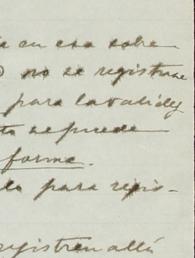 en esa sobre
no se registrase
para la validez
se puede
forma.
para regis-
registren allá